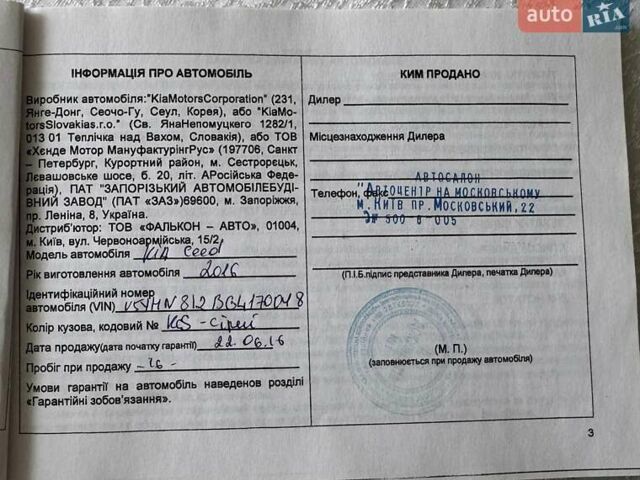 auto RIA
.com
ІНФОРМАЦІЯ ПРО АВТОМОБІЛЬ
Виробник автомобіля:"KiaMotorsCorporation" (231,
Янге-Донг, Сеочо-Гу, Сеул, Корея), або "KiaMo-
torsSlovakias.r.o." (Св. ЯнаНепомуцкего 1282/1,
013 01 Теплічка над Вахом, Словакія), або ТОВ
«Хєнде Мотор МануфактурінгРус» (197706, Санкт
– Петербург, Курортний район, м. Сестрорєцьк,
Лєвашовське шосе, б. 20, літ. АРосійська Феде-
рація), ПАТ "ЗАПОРІЗЬКИЙ АВТОМОБІЛЕБУДІ-
ВНИЙ ЗАВОД" (ПАТ «ЗАЗ»)69600, м. Запоріжжя,
пр. Леніна, 8, Україна.
Дистриб'ютор: ТОВ «ФАЛЬКОН – АВТО», 01004,
м. Київ, вул. Червоноармійська, 15/2,
Модель автомобіля KIA Ceed
Рік виготовлення автомобіля 2016
Ідентифікаційний номер
автомобіля (VIN)
Колір кузова, кодовий № KCS - сірий
Дата продажу(дата початку гарантії) 22.06.16
Пробіг при продажу -16-
Умови гарантії на автомобіль наведенов розділі
«Гарантійні зобов'язання».
КИМ ПРОДАНО
Дилер
Місцезнаходження Дилера
АВТОСАЛОН
Телефон, факс "АВТОЦЕНТР НА МОСКОВСЬКОМУ"
м. КИЇВ ПР. МОСКОВСЬКИЙ, 22
500 8 005
(П.І.Б.підпис представника Дилера, печатка Дилера)
(М. П.)
(заповнюється при продажу автомобіля)
3